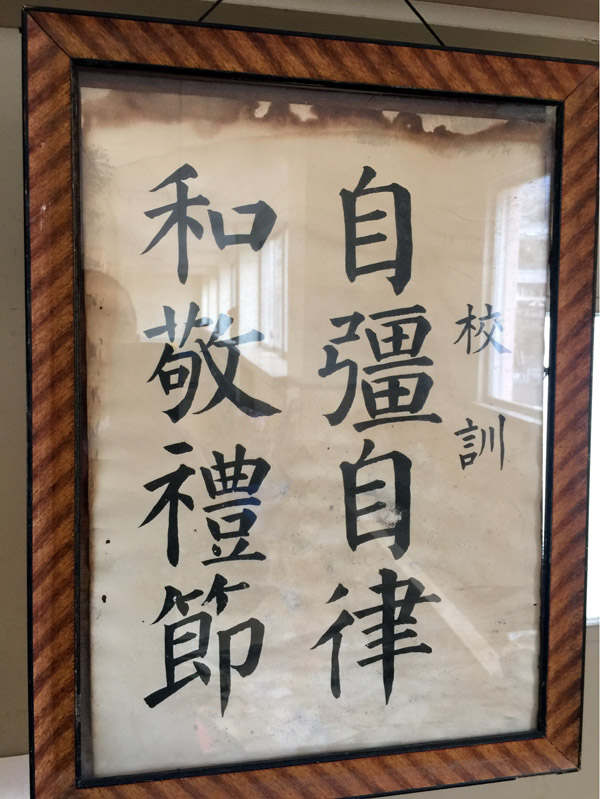 校訓
自彊自律
和敬禮節